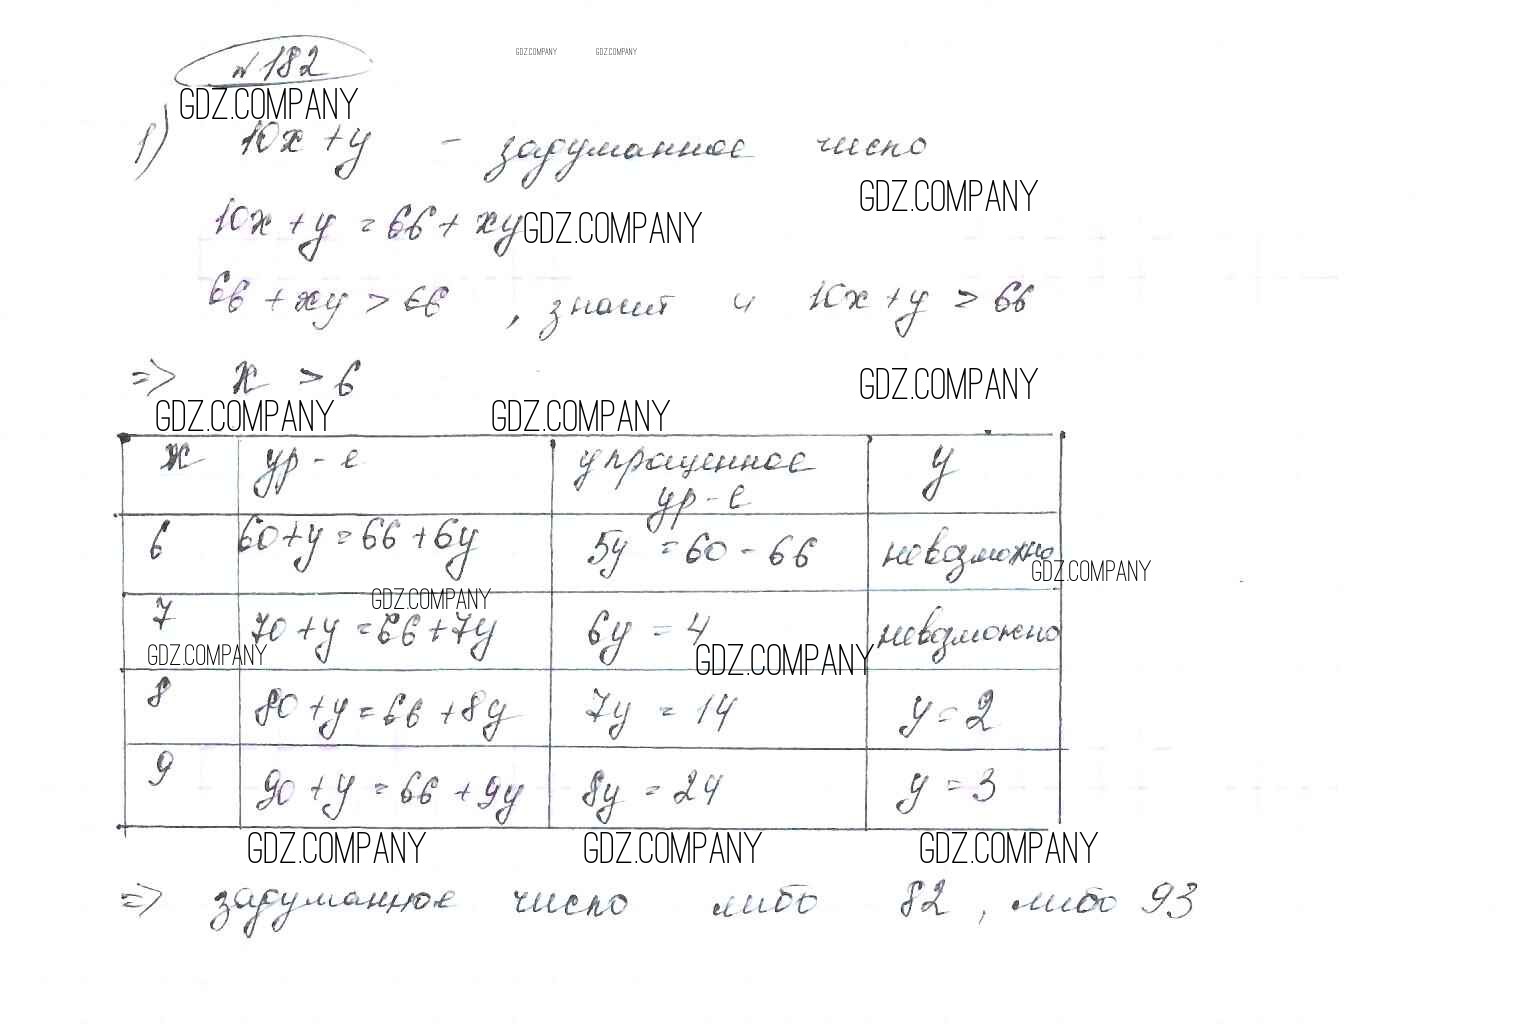 №182
GDZ.COMPANY GDZ.COMPANY
GDZ.COMPANY
1) 10x + y - задуманное число
GDZ.COMPANY
10x + y = 66 + xy GDZ.COMPANY
66 + xy > 66 , значит и 10x + y > 66
=> x > 6
GDZ.COMPANY
GDZ.COMPANY GDZ.COMPANY
x ур-е упрощенное ур-е y
6 60+y=66+6y 5y = 60 - 66 невозможно
GDZ.COMPANY
GDZ.COMPANY
7 70+y=66+7y 6y = 4 невозможно
GDZ.COMPANY GDZ.COMPANY
8 80+y=66+8y 7y = 14 y=2
9 90+y=66+9y 8y = 24 y = 3
GDZ.COMPANY GDZ.COMPANY GDZ.COMPANY
=> задуманное число либо 82, либо 93